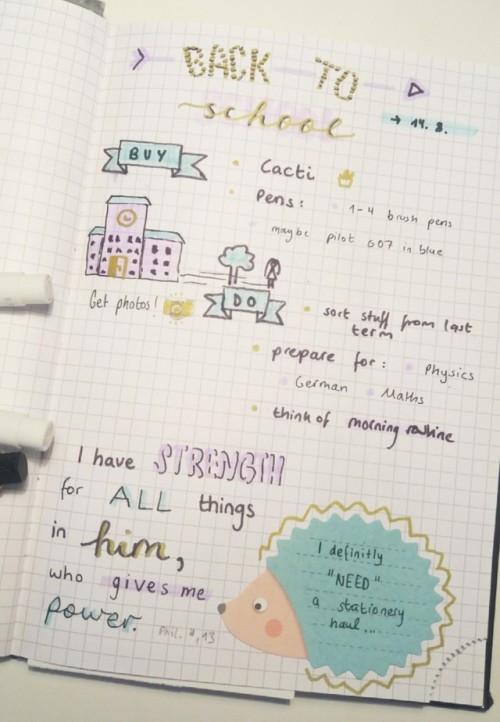 BACK TO
school
→ 14. 8.
BUY
Cacti
Pens:
1-4 brush pens
maybe pilot G07 in blue
Get photos!
DO
sort stuff from last
term
prepare for: Physics
German Maths
think of morning routine
I have STRENGTH
for ALL things
in him,
who gives me
power. Phil. 4,13
I definitly
"NEED"
a stationery
haul...